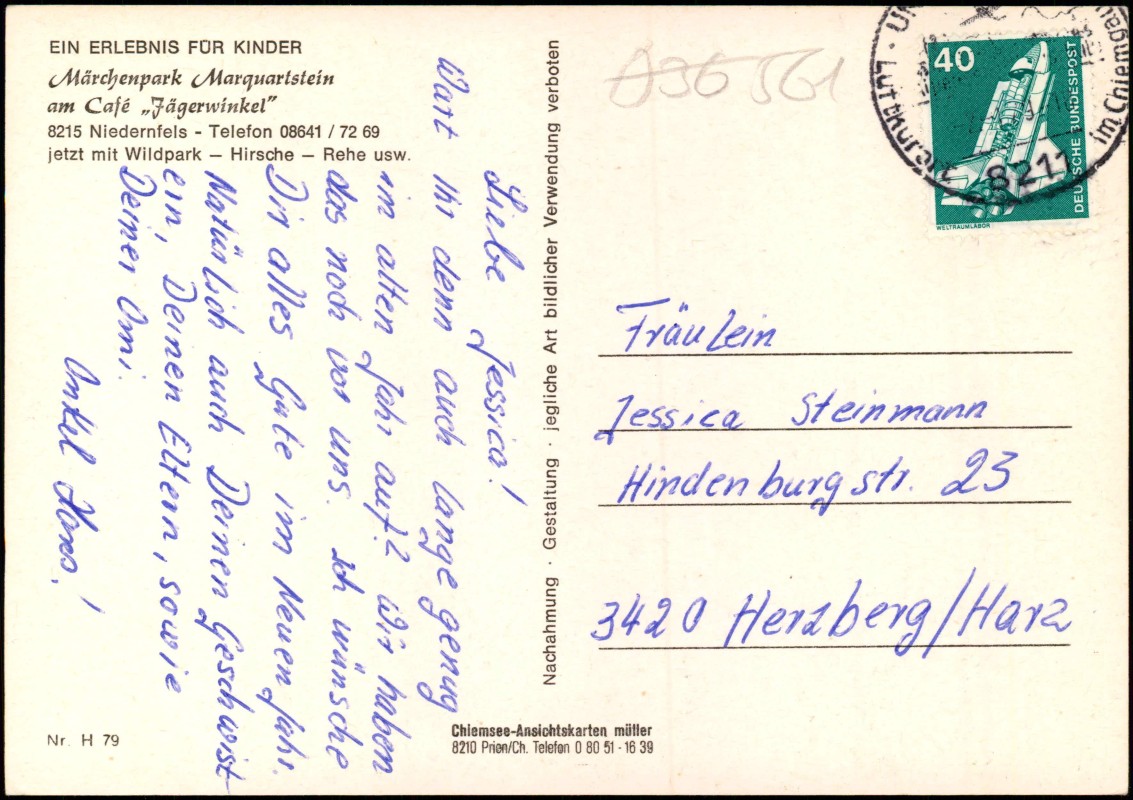 EIN ERLEBNIS FÜR KINDER
Märchenpark Marquartstein
am Café „Jägerwinkel”
8215 Niedernfels - Telefon 08641 / 72 69
jetzt mit Wildpark – Hirsche – Rehe usw.
Liebe Jessica!
Wart Ihr denn auch lange genug
im alten Jahr auf? Wir haben
das noch vor uns. Ich wünsche
Dir alles Gute im Neuen Jahr.
Natürlich auch Deinen Geschwist
ern, Deinen Eltern, sowie
Deiner Omi.
Onkel Hans!
Nr. H 79
Chiemsee-Ansichtskarten müller
8210 Prien/Ch. Telefon 0 80 51 - 16 39
Nachahmung · Gestaltung · jegliche Art bildlicher Verwendung verboten
A36 561
40
DEUTSCHE BUNDESPOST
WELTRAUMLABOR
8211
Luftkurort
im Chiemgau
Fräulein
Jessica Steinmann
Hindenburgstr. 23
3420 Herzberg/Harz